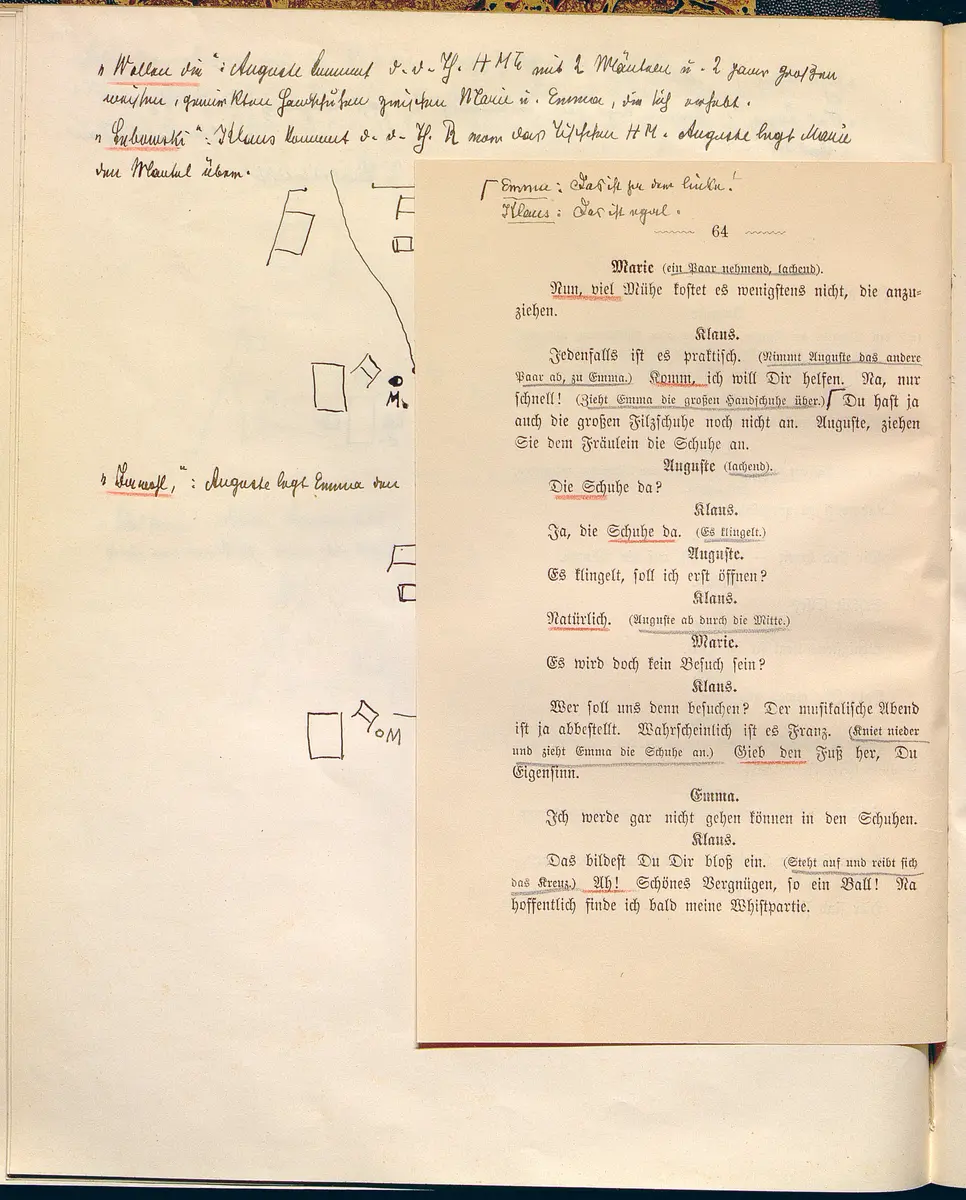 „Wollen die“: Auguste kommt d. d. Th. H M mit 2 Mänteln u. 2 Paar großen
weißen, gewirkten Handschuhen zwischen Marie u. Emma, die sich erhebt.
„Lubowski“: Klaus kommt d. d. Th. R das Tischchen H M. Auguste legt Marie
den Mantel über.
M.
„Jawohl,“: Auguste legt Emma den
M
Emma: Das ist ja der linke!
Klaus: Das ist egal.
64
Marie (ein Paar nehmend, lachend).
Nun, viel Mühe kostet es wenigstens nicht, die anzu=
ziehen.
Klaus.
Jedenfalls ist es praktisch. (Nimmt Auguste das andere
Paar ab, zu Emma.) Komm, ich will Dir helfen. Na, nur
schnell! (Zieht Emma die großen Handschuhe über.) Du hast ja
auch die großen Filzschuhe noch nicht an. Auguste, ziehen
Sie dem Fräulein die Schuhe an.
Auguste (lachend).
Die Schuhe da?
Klaus.
Ja, die Schuhe da. (Es klingelt.)
Auguste.
Es klingelt, soll ich erst öffnen?
Klaus.
Natürlich. (Auguste ab durch die Mitte.)
Marie.
Es wird doch kein Besuch sein?
Klaus.
Wer soll uns denn besuchen? Der musikalische Abend
ist ja abbestellt. Wahrscheinlich ist es Franz. (Kniet nieder
und zieht Emma die Schuhe an.) Gieb den Fuß her, Du
Eigensinn.
Emma.
Ich werde gar nicht gehen können in den Schuhen.
Klaus.
Das bildest Du Dir bloß ein. (Steht auf und reibt sich
das Kreuz.) Ah! Schönes Vergnügen, so ein Ball! Na
hoffentlich finde ich bald meine Whistpartie.